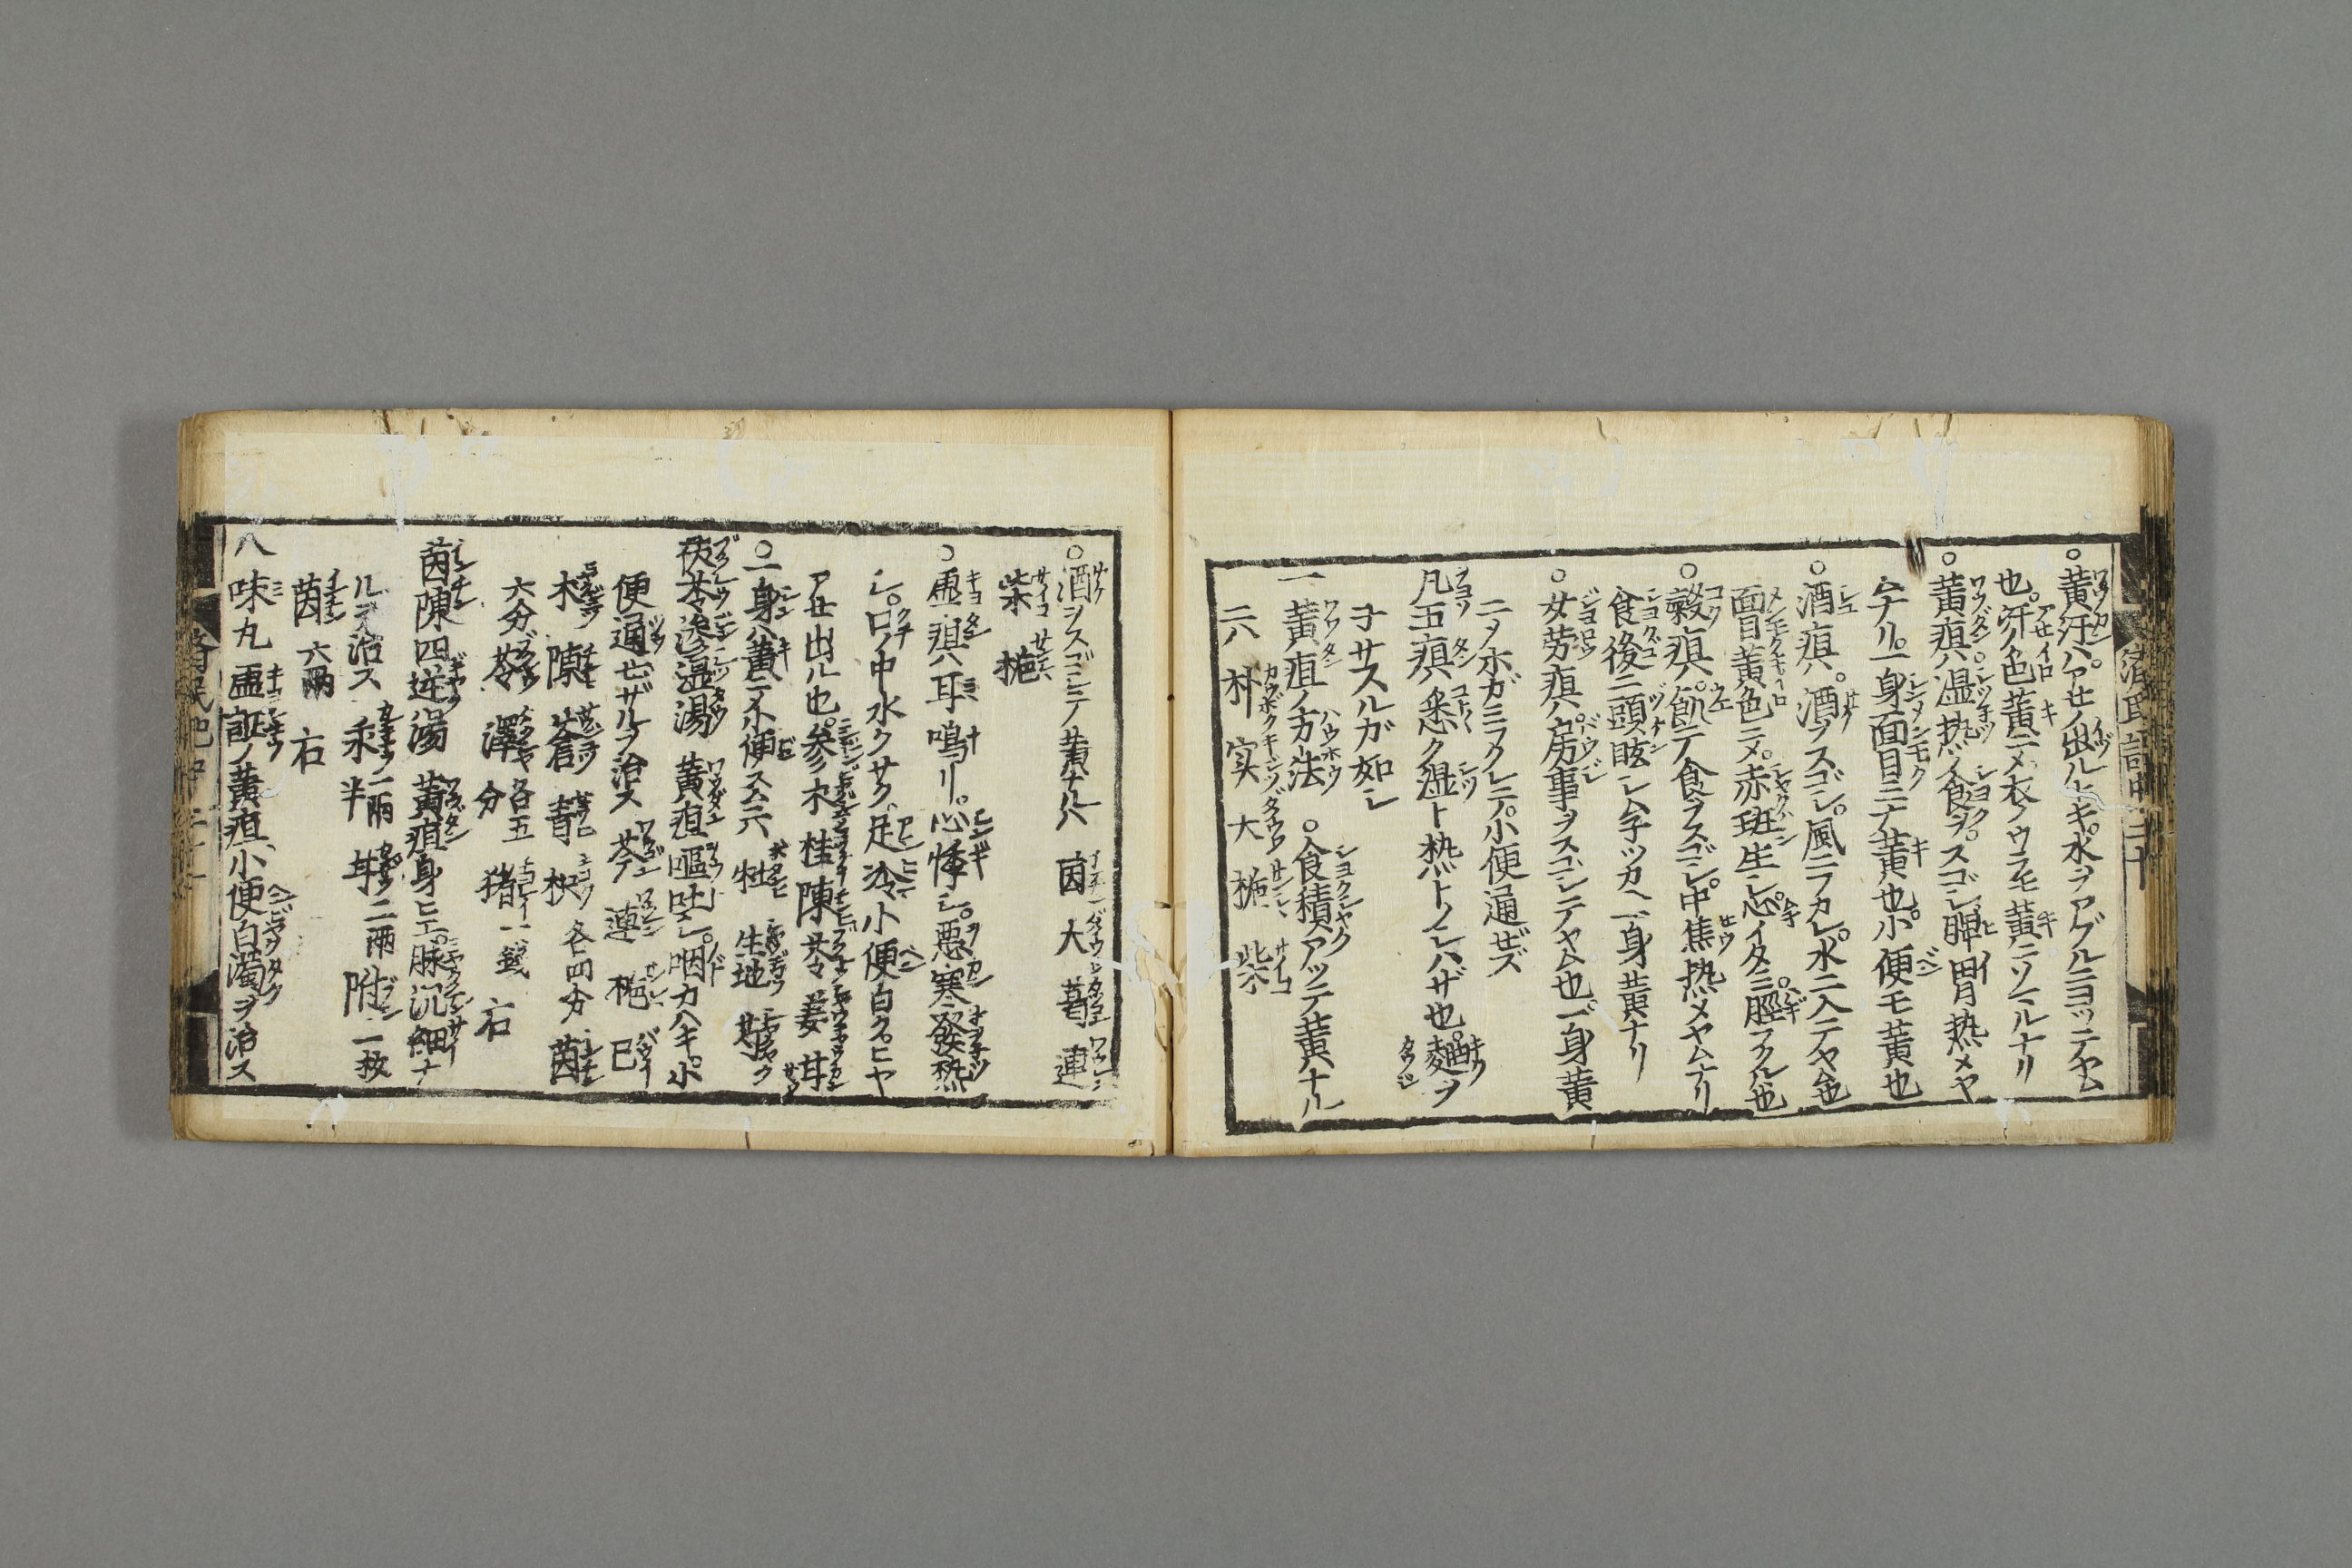 ○黄汗ハ。アセノ出ルトキ。水ヲアブルニヨッテヤム
也。汗ノ色黄ニメ衣ノウラモ黄ニソマルナリ
○黄疸ハ湿热ノ食ヲ。スゴシ脾胃热メヤ
ムナリ。一身面目ミナ黄也。小便モ黄也
○酒疸ハ。酒ヲスゴシ。風ニフカレ。水ニ入テヤム也
面目黄色ニメ。赤斑生シ。心イタミ脛フクル也
○穀疸ハ。飢テ食ヲスゴシ。中焦热メヤムナリ
食後ニ頭眩シムネツカヘ一身黄ナリ
○女労疸ハ。房事ヲスゴシテヤム也。一身黄
ニメホガミフクレテ。小便通ゼズ
凡五疸ハ悉ク湿ト热トノシハザ也。麹ヲ
子サスルガ如シ
一黄疸ノ方法 ○食積アツテ黄ナル
二八 朴 実 大 梔 柴
○酒ヲスゴシテ黄ナルハ 茵 大 葛 連
柴 梔
○虚疸ハ耳鳴リ。心悸シ。悪寒發熱
シ。口ノ中水クサク足冷小便白ク。ヒヤ
アせ出ル也。参 朮 桂 陳 苓 姜 甘
○一身ハ黄ニテ不便スムニハ 牡 生地 芍
茯苓滲湿湯 黄疸嘔吐シ。咽カハキ。小
便通ぜザルヲ治ス 芩 連 梔 已
朮 陳 蒼 青 枳 各四分 茵
六分 苓 澤 各五分 猪 一錢 右
茵陳四逆湯 黄疸身ヒエ。脉沉細ナ
ルヲ治ス 乖 二兩半 甘 二兩 附 一枚
茵 六兩 右
八味丸 虚証ノ黄疸、小便白濁ヲ治ス